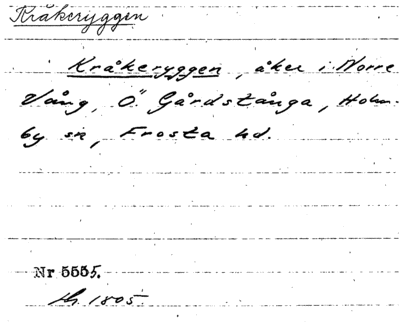 Kråkeryggen
Kråkeryggen, åker i Norre
Vång, Ö Gårdstånga, Holm-
by sn, Frosta hd.
Nr 5555.
1805.